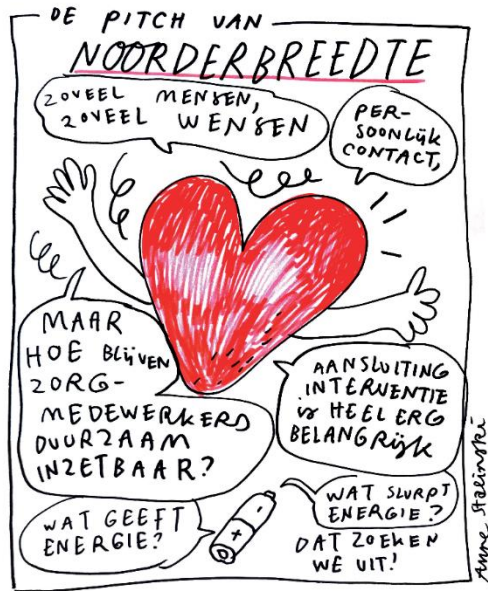 DE PITCH VAN
NOORDERBREEDTE
ZOVEEL MENSEN,
ZOVEEL WENSEN
PER-
SOONLIJK
CONTACT,
MAAR
HOE BLijVEN
ZORG-
MEDEWERKERS
DUURZAAM
INZETBAAR?
AANSLUITING
INTERVENTIE
is HEEL ERG
BELANGRIJK
WAT GEEFT
ENERGIE?
WAT SLURPT
ENERGIE?
DAT ZOEKEN
WE UIT!
Anne Stalinski